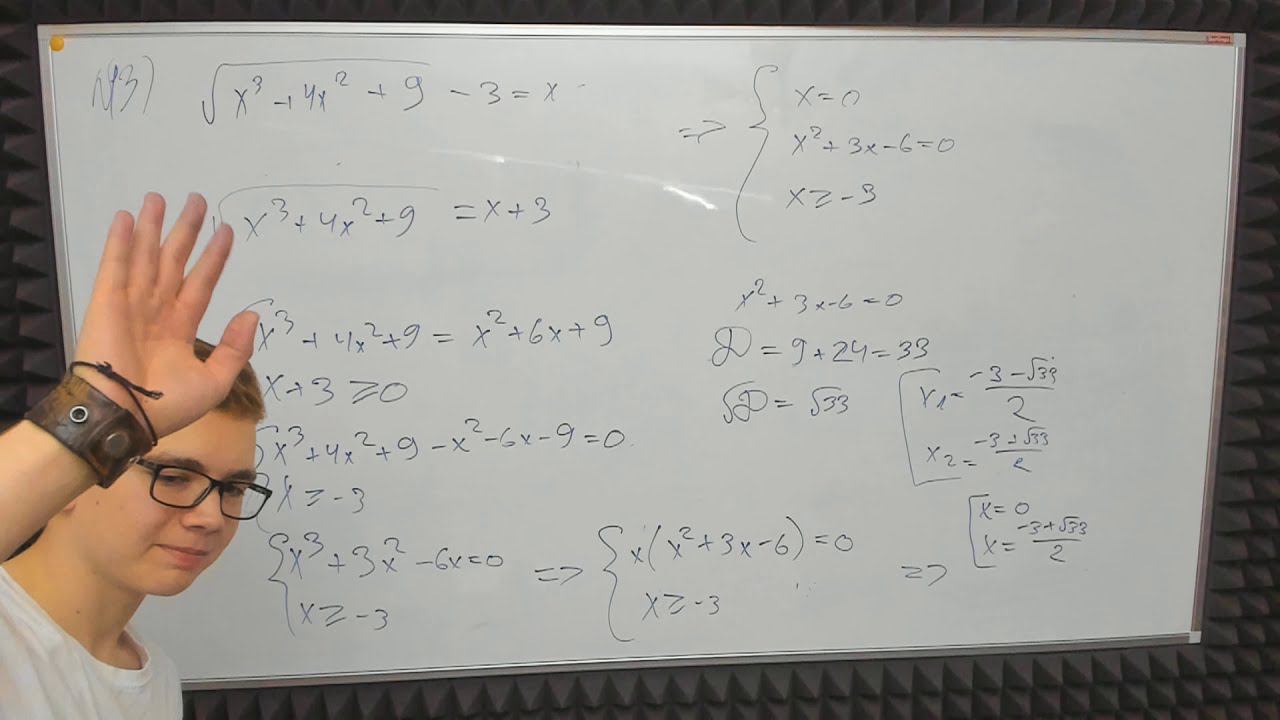 №3) √(x³ + 4x² + 9) - 3 = x
√(x³ + 4x² + 9) = x + 3
{ x³ + 4x² + 9 = x² + 6x + 9
x + 3 ≥ 0
{ x³ + 4x² + 9 - x² - 6x - 9 = 0
x ≥ -3
{ x³ + 3x² - 6x = 0
x ≥ -3
=> { x(x² + 3x - 6) = 0
x ≥ -3
=> { x = 0
x² + 3x - 6 = 0
x ≥ -3
x² + 3x - 6 = 0
D = 9 + 24 = 33
√D = √33
[ x₁ = (-3 - √33)/2
x₂ = (-3 + √33)/2
=> [ x = 0
x = (-3 + √33)/2